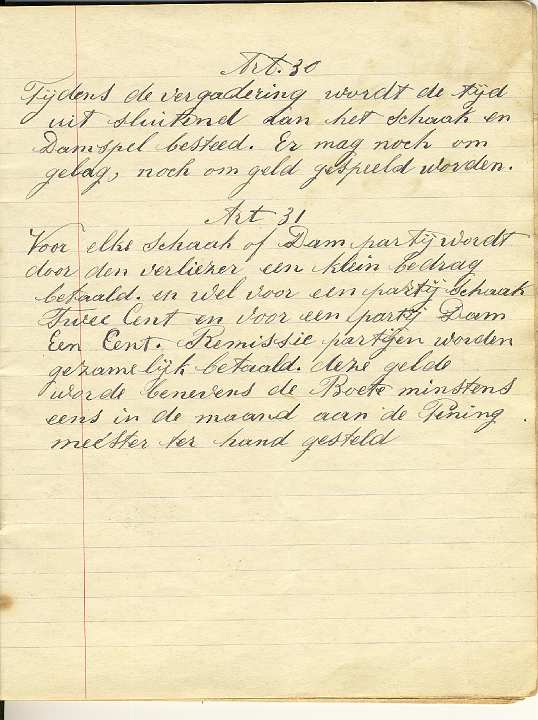 Art. 30
Tijdens de vergadering wordt de tijd
uit sluitend aan het schaak en
Damspel besteed. Er mag noch om
gelag, noch om geld gespeeld worden.
Art 31
Voor elke schaak of Dam partij wordt
door den verliezer een klein bedrag
betaald. en wel voor een partij schaak
Twee Cent en voor een partij Dam
Een Cent. Remissie partijen worden
gezamelijk betaald. deze gelde
worde benevens de Boete minstens
eens in de maand aan de Pening
meester ter hand gesteld